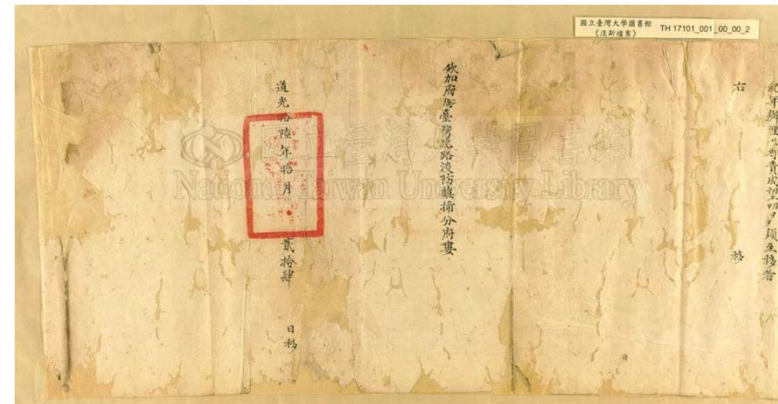 國立臺灣大學圖書館
《淡新檔案》
TH 17101_001_00_00_2
責成望切須至移者
右 移
欽加府銜臺灣北路淡防總捕分府婁
道光拾陸年拾月 貳拾肆 日移
National Taiwan University Library